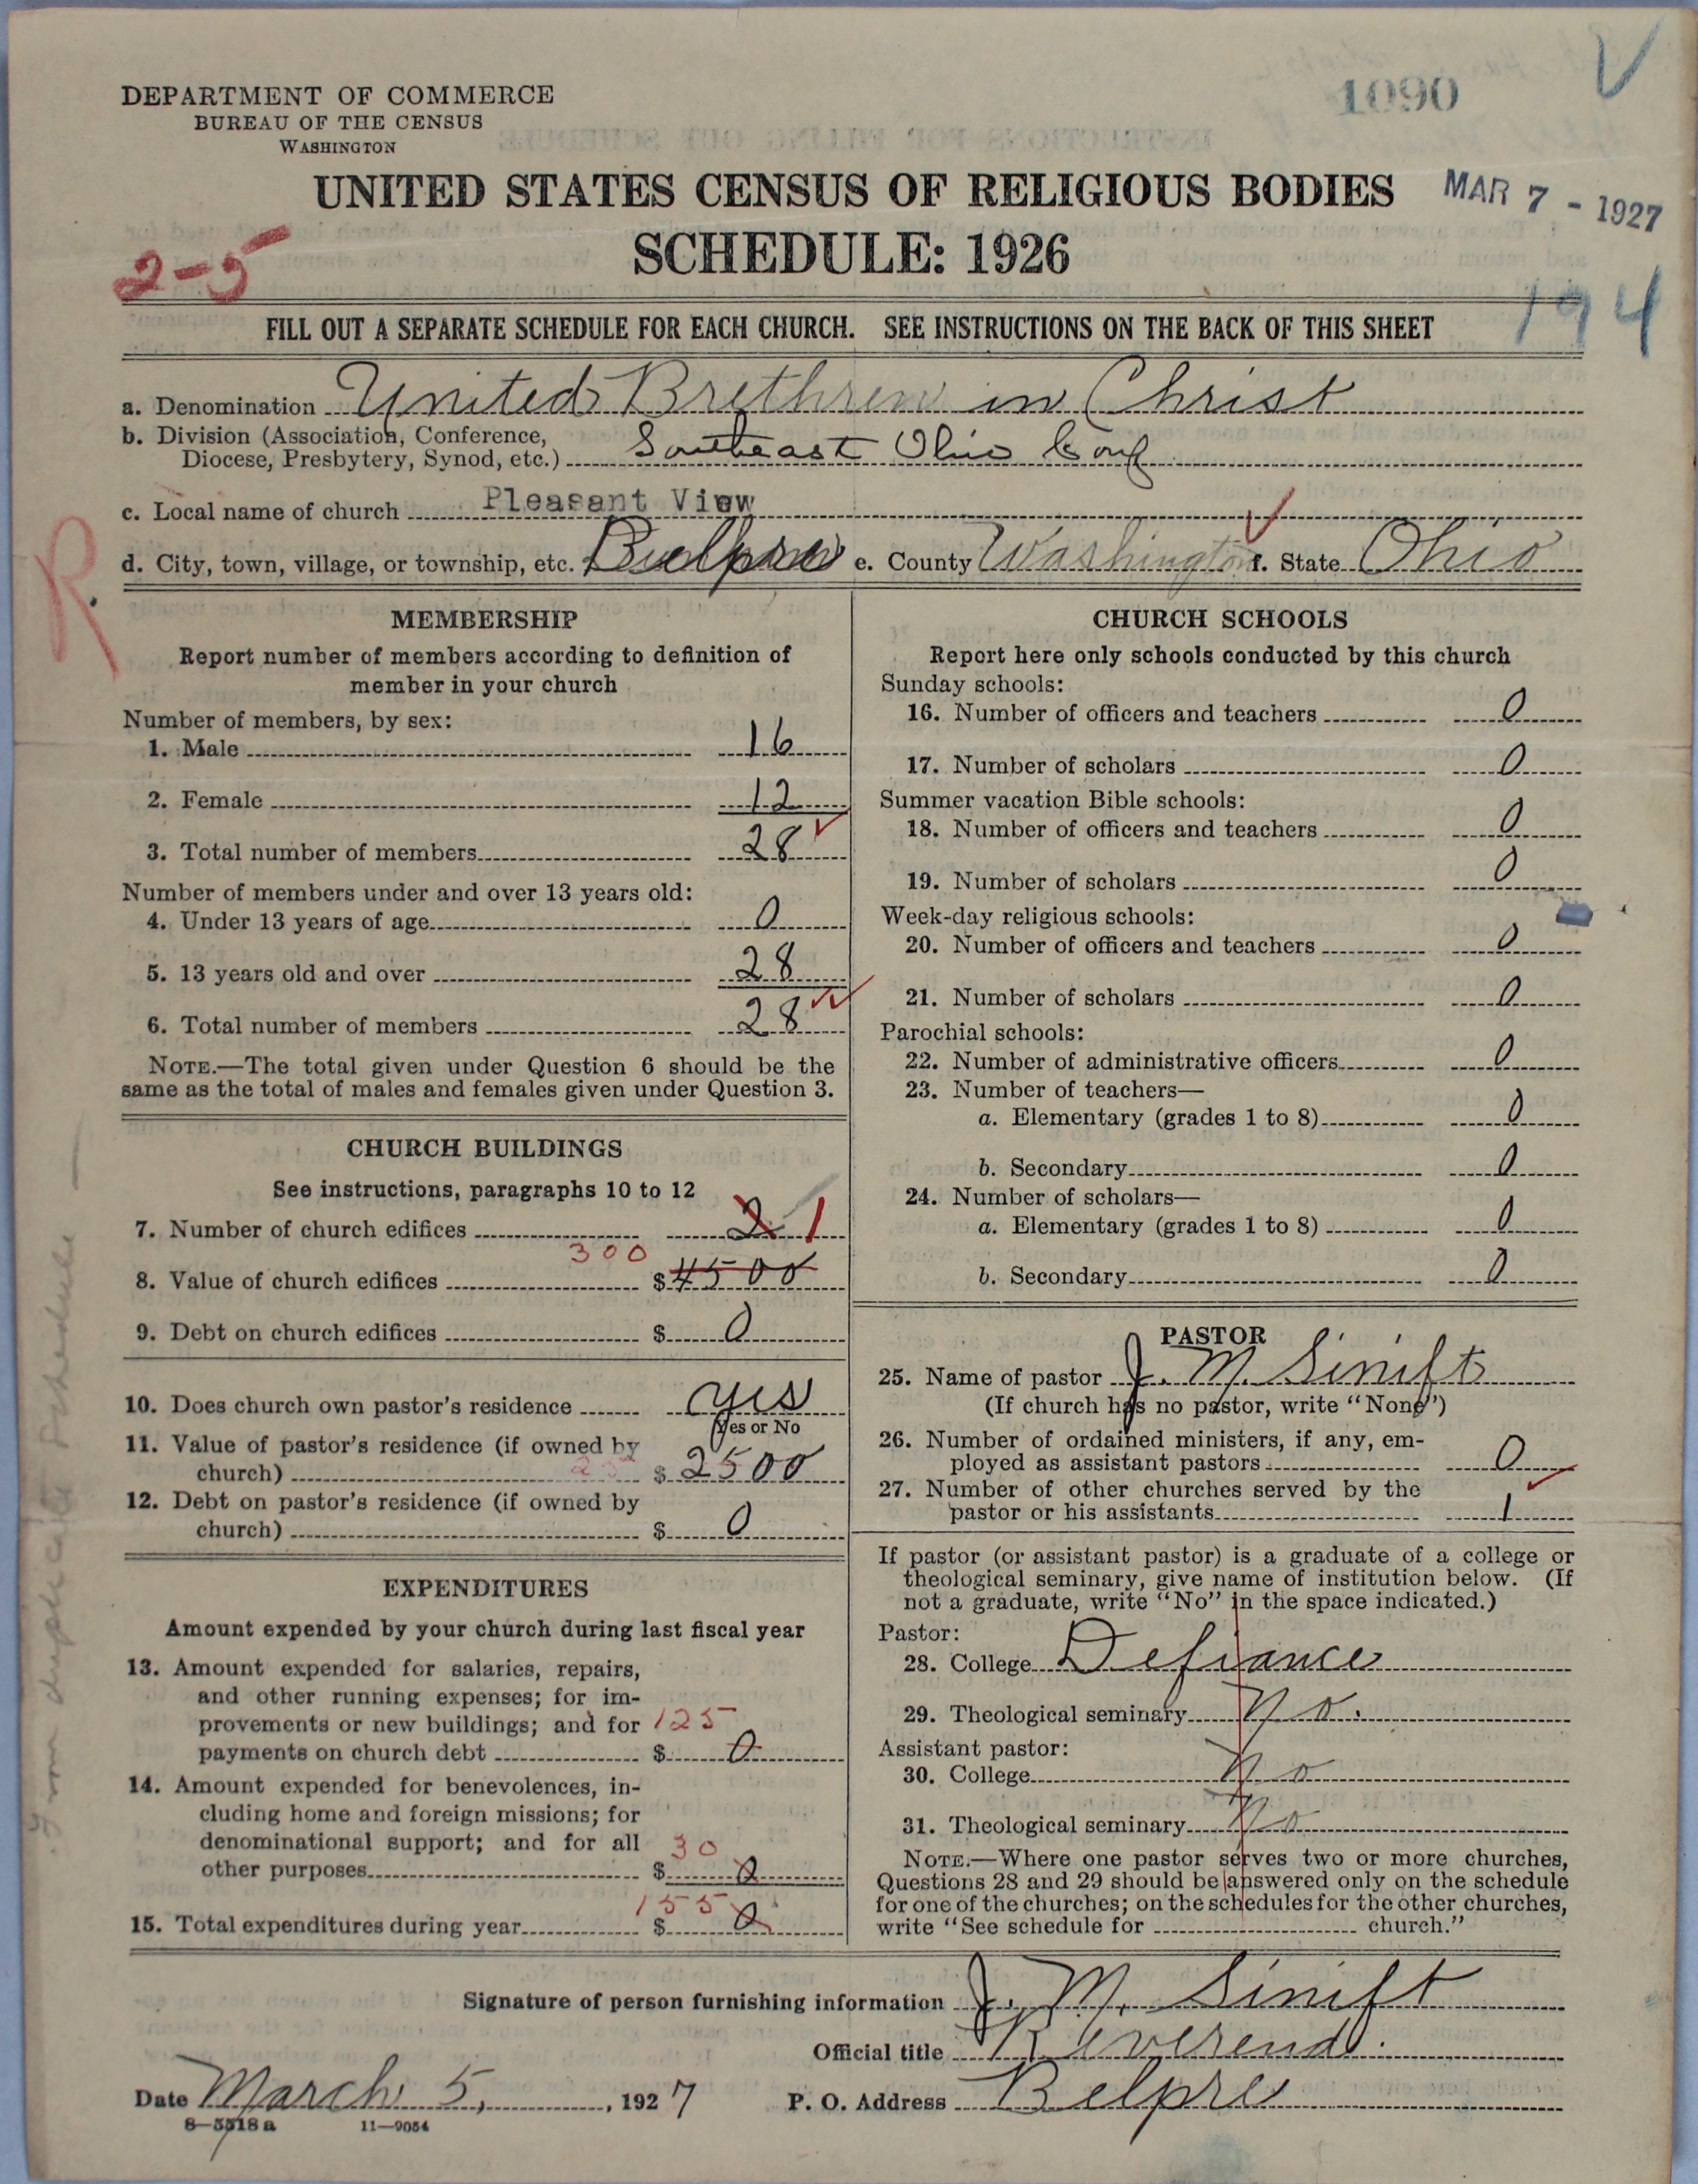 DEPARTMENT OF COMMERCE
BUREAU OF THE CENSUS
WASHINGTON
1090
UNITED STATES CENSUS OF RELIGIOUS BODIES
MAR 7 - 1927
SCHEDULE: 1926
2-5
194
FILL OUT A SEPARATE SCHEDULE FOR EACH CHURCH. SEE INSTRUCTIONS ON THE BACK OF THIS SHEET
a. Denomination United Brethren in Christ
b. Division (Association, Conference,
Diocese, Presbytery, Synod, etc.) Southeast Ohio Conf
c. Local name of church Pleasant View
d. City, town, village, or township, etc. e. County Washington f. State Ohio
R.
MEMBERSHIP
Report number of members according to definition of
member in your church
Number of members, by sex:
1. Male 16
2. Female 12
3. Total number of members 28
Number of members under and over 13 years old:
4. Under 13 years of age 0
5. 13 years old and over 28
6. Total number of members 28
NOTE.—The total given under Question 6 should be the
same as the total of males and females given under Question 3.
CHURCH BUILDINGS
See instructions, paragraphs 10 to 12
7. Number of church edifices 2 1
300
8. Value of church edifices $ 4500
9. Debt on church edifices $ 0
10. Does church own pastor's residence yes
(Yes or No
11. Value of pastor's residence (if owned by
church) $ 2500
12. Debt on pastor's residence (if owned by
church) $ 0
EXPENDITURES
Amount expended by your church during last fiscal year
13. Amount expended for salaries, repairs,
and other running expenses; for im-
provements or new buildings; and for 125
payments on church debt $ 0
14. Amount expended for benevolences, in-
cluding home and foreign missions; for
denominational support; and for all 30
other purposes $ 0
155
15. Total expenditures during year $ 0
CHURCH SCHOOLS
Report here only schools conducted by this church
Sunday schools:
16. Number of officers and teachers 0
17. Number of scholars 0
Summer vacation Bible schools:
18. Number of officers and teachers 0
19. Number of scholars 0
Week-day religious schools:
20. Number of officers and teachers 0
21. Number of scholars 0
Parochial schools:
22. Number of administrative officers 0
23. Number of teachers—
a. Elementary (grades 1 to 8) 0
b. Secondary 0
24. Number of scholars—
a. Elementary (grades 1 to 8) 0
b. Secondary 0
PASTOR
25. Name of pastor J. M. Sinift
(If church has no pastor, write "None")
26. Number of ordained ministers, if any, em-
ployed as assistant pastors 0
27. Number of other churches served by the
pastor or his assistants 1
If pastor (or assistant pastor) is a graduate of a college or
theological seminary, give name of institution below. (If
not a graduate, write "No" in the space indicated.)
Pastor:
28. College Defiance
29. Theological seminary No.
Assistant pastor:
30. College No
31. Theological seminary No
NOTE.—Where one pastor serves two or more churches,
Questions 28 and 29 should be answered only on the schedule
for one of the churches; on the schedules for the other churches,
write "See schedule for church."
Signature of person furnishing information J. M. Sinift
Official title Reverend.
Date March 5, , 1927 P. O. Address Belpre
8—5518a 11—9054
From duplicate schedule —